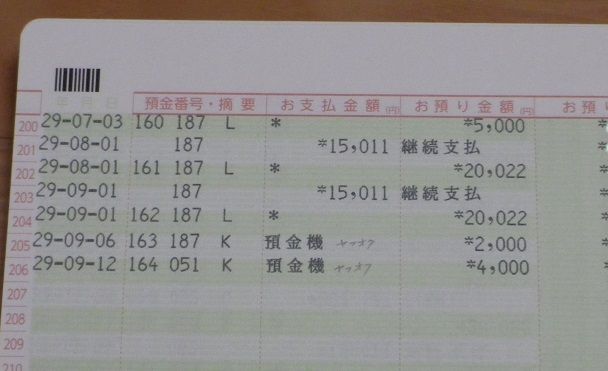 年月日 預金番号・摘要 お支払金額(円) お預り金額(円) お預り
200 29-07-03 160 187 L * *5,000 *
201 29-08-01 187 *15,011 継続支払 *
202 29-08-01 161 187 L * *20,022 *
203 29-09-01 187 *15,011 継続支払 *
204 29-09-01 162 187 L * *20,022 *
205 29-09-06 163 187 K 預金機 ヤフオク *2,000 *
206 29-09-12 164 051 K 預金機 ヤフオク *4,000 *
207
208
209
210